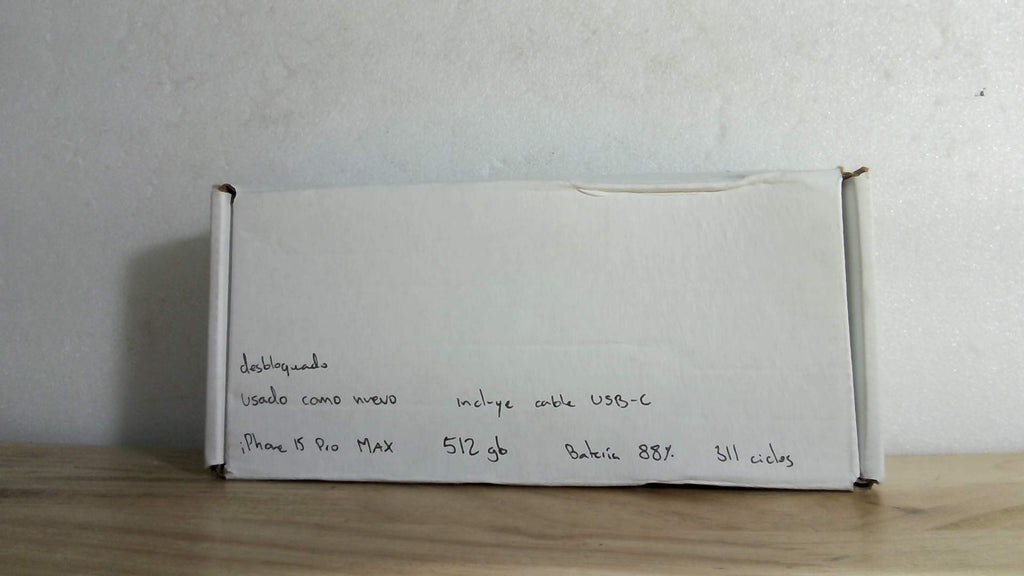 desbloqueado
usado como nuevo incluye cable USB-C
iPhone 15 Pro MAX 512 gb Batería 88% 311 ciclos